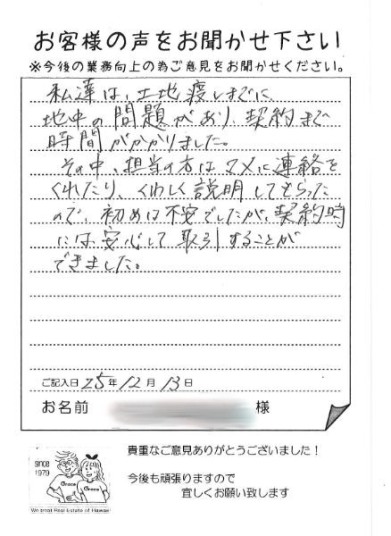 お客様の声をお聞かせ下さい
※今後の業務向上の為ご意見をお聞かせください。
私達は、土地渡しまでに
地中の問題があり、契約まで
時間がかかりました。
その中、担当の方はマメに連絡を
くれたり、くわしく説明してもらった
ので、初めは不安でしたが、契約時
には、安心して取引することが
できました。
ご記入日 25年 12月 13日
お名前 様
since
1979
貴重なご意見ありがとうございました!
今後も頑張りますので
宜しくお願い致します